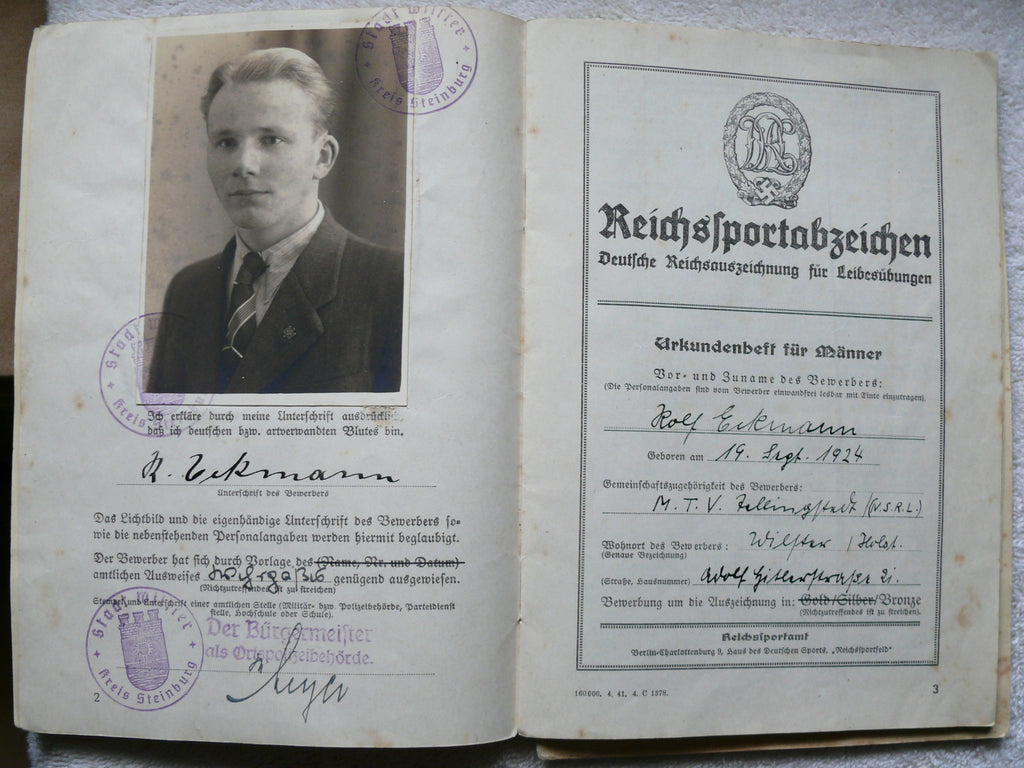 Stadt Wilster
Kreis Steinburg
Stadt
Kreis
Ich erkläre durch meine Unterschrift ausdrücklich,
daß ich deutschen bzw. artverwandten Blutes bin.
R. Eckmann
Unterschrift des Bewerbers
Das Lichtbild und die eigenhändige Unterschrift des Bewerbers so-
wie die nebenstehenden Personalangaben werden hiermit beglaubigt.
Der Bewerber hat sich durch Vorlage des (Name, Nr. und Datum)
amtlichen Ausweises genügend ausgewiesen.
(Nichtzutreffendes ist zu streichen)
Stempel und Unterschrift einer amtlichen Stelle (Militär- bzw. Polizeibehörde, Parteidienst
stelle, Hochschule oder Schule).
Stadt Wilster
Kreis Steinburg
Der Bürgermeister
als Ortspolizeibehörde.
2
DRL
Reichssportabzeichen
Deutsche Reichsauszeichnung für Leibesübungen
Urkundenheft für Männer
Vor- und Zuname des Bewerbers:
(Die Personalangaben sind vom Bewerber einwandfrei lesbar mit Tinte einzutragen).
Rolf Eckmann
Geboren am 19. Sept. 1924
Gemeinschaftszugehörigkeit des Bewerbers:
M. T. V. Tellingstedt (N.S.R.L.)
Wohnort des Bewerbers: Wilster / Holst.
(Genaue Bezeichnung)
(Straße, Hausnummer) Adolf Hitlerstraße 21.
Bewerbung um die Auszeichnung in: Gold/Silber/Bronze
(Nichtzutreffendes ist zu streichen).
Reichssportamt
Berlin-Charlottenburg 9, Haus des Deutschen Sports, „Reichssportfeld“
160000. 4. 41. 4. C 1378.
3